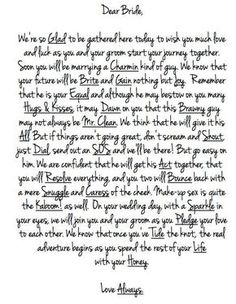 Dear Bride,
We're so Glad to be gathered here today to wish you much love
and luck as you and your groom start your journey together.
Soon you will be marrying a Charmin kind of guy. We know that
your future will be Brite and Gain nothing but Joy. Remember
that he is your Equal and although he may bestow on you many
Hugs & Kisses, it may Dawn on you that this Brawny guy
may not always be Mr. Clean. We think that he will give it his
All. But if things aren't going great, don't scream and Shout,
just Dial, send out an SOS and we'll be there! But go easy on
him. We are confident that he will get his Act together, that
you will Resolve everything, and you two will Bounce back with
a mere Snuggle and Caress of the cheek. Make-up sex is quite
the Kaboom! as well. On your wedding day, with a Sparkle in
your eyes, we will join you and your groom as you Pledge your love
to each other. We know that once you've Tide the knot, the real
adventure begins as you spend the rest of your Life
with your Honey.
Love Always,